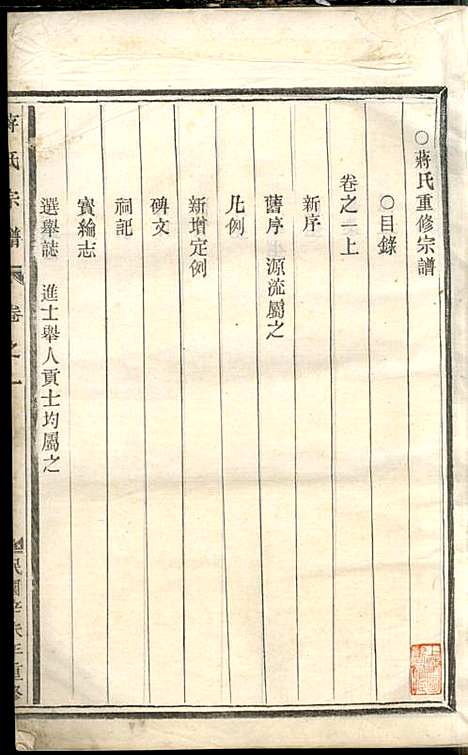 ○蔣氏重修宗譜
○目錄
卷之一上
新序
舊序 源流屬之
凡例
新增定例
碑文
祠記
寳綸志
選舉誌 進士舉人貢士均屬之
蔣氏宗譜 卷之一 民國辛未年重修